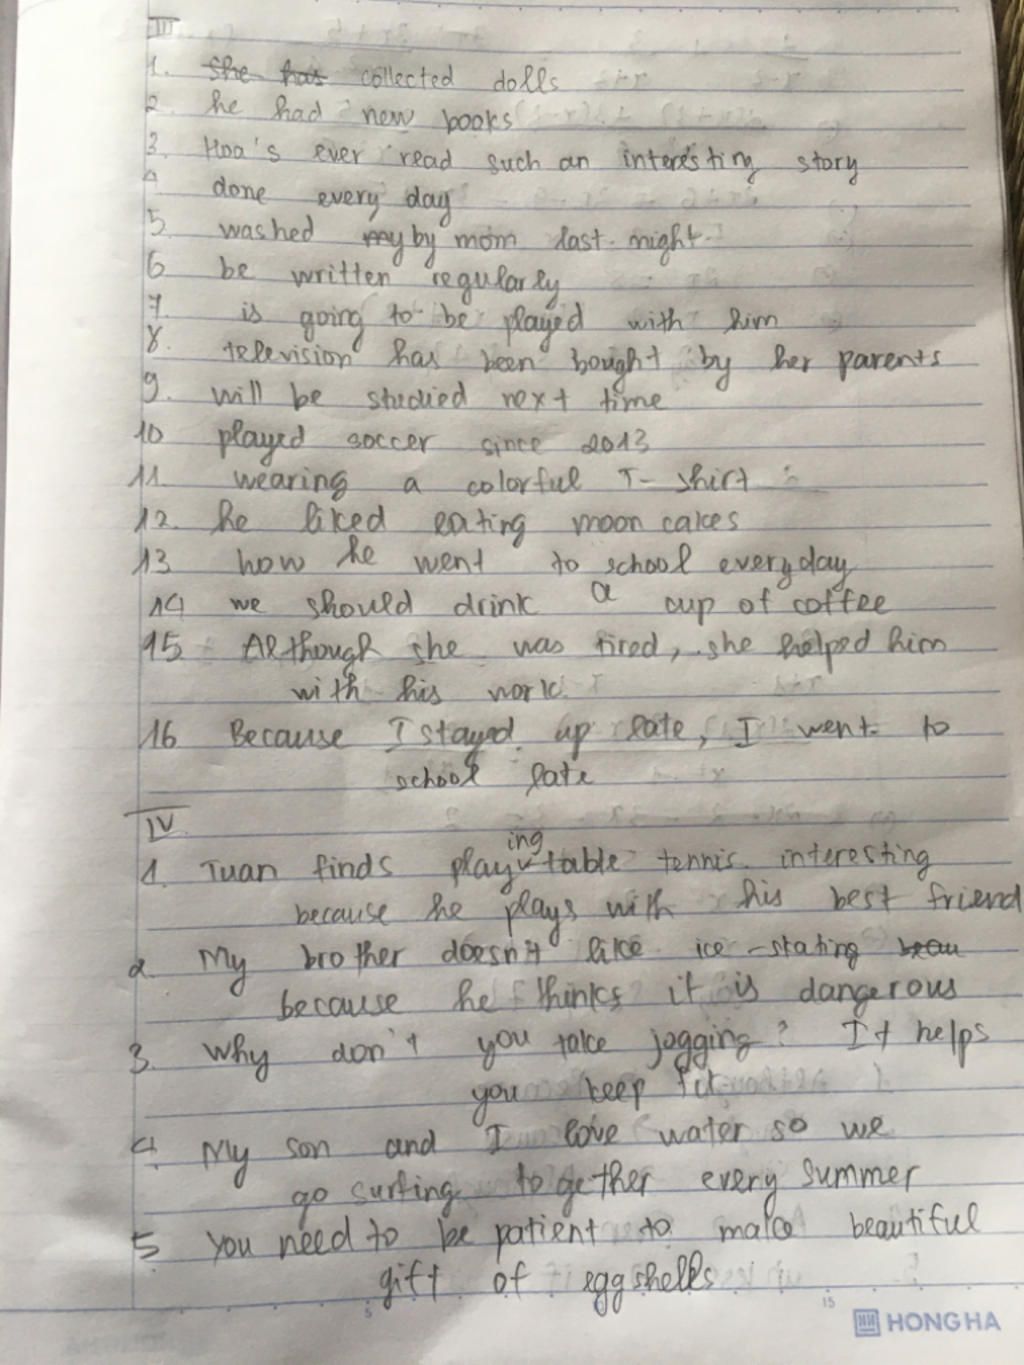 III
1. She has collected dolls
2. he had new books
3. Hoa's ever read such an interesting story
4 done every day
5. washed my by mom last night.
6 be written regularly
7. is going to be played with him
8. television has been bought by her parents
9. will be studied next time
10 played soccer since 2013
11. wearing a colorful T-shirt
12. he liked eating moon cakes
13 how he went to school everyday
14 we should drink a cup of coffee
15 Although she was tired, she helped him
with his work.
16 Because I stayed up late, I went to
school late
IV
ing
1. Tuan finds play table tennis interesting
because he plays with his best friend
2. My brother doesn't like ice-skating beau
because he thinks it is dangerous
3. Why don't you take jogging? It helps
you keep fit
4. My son and I love water so we
go surfing together every summer
5 You need to be patient to make beautiful
gift of eggshells
5
15
HONG HA